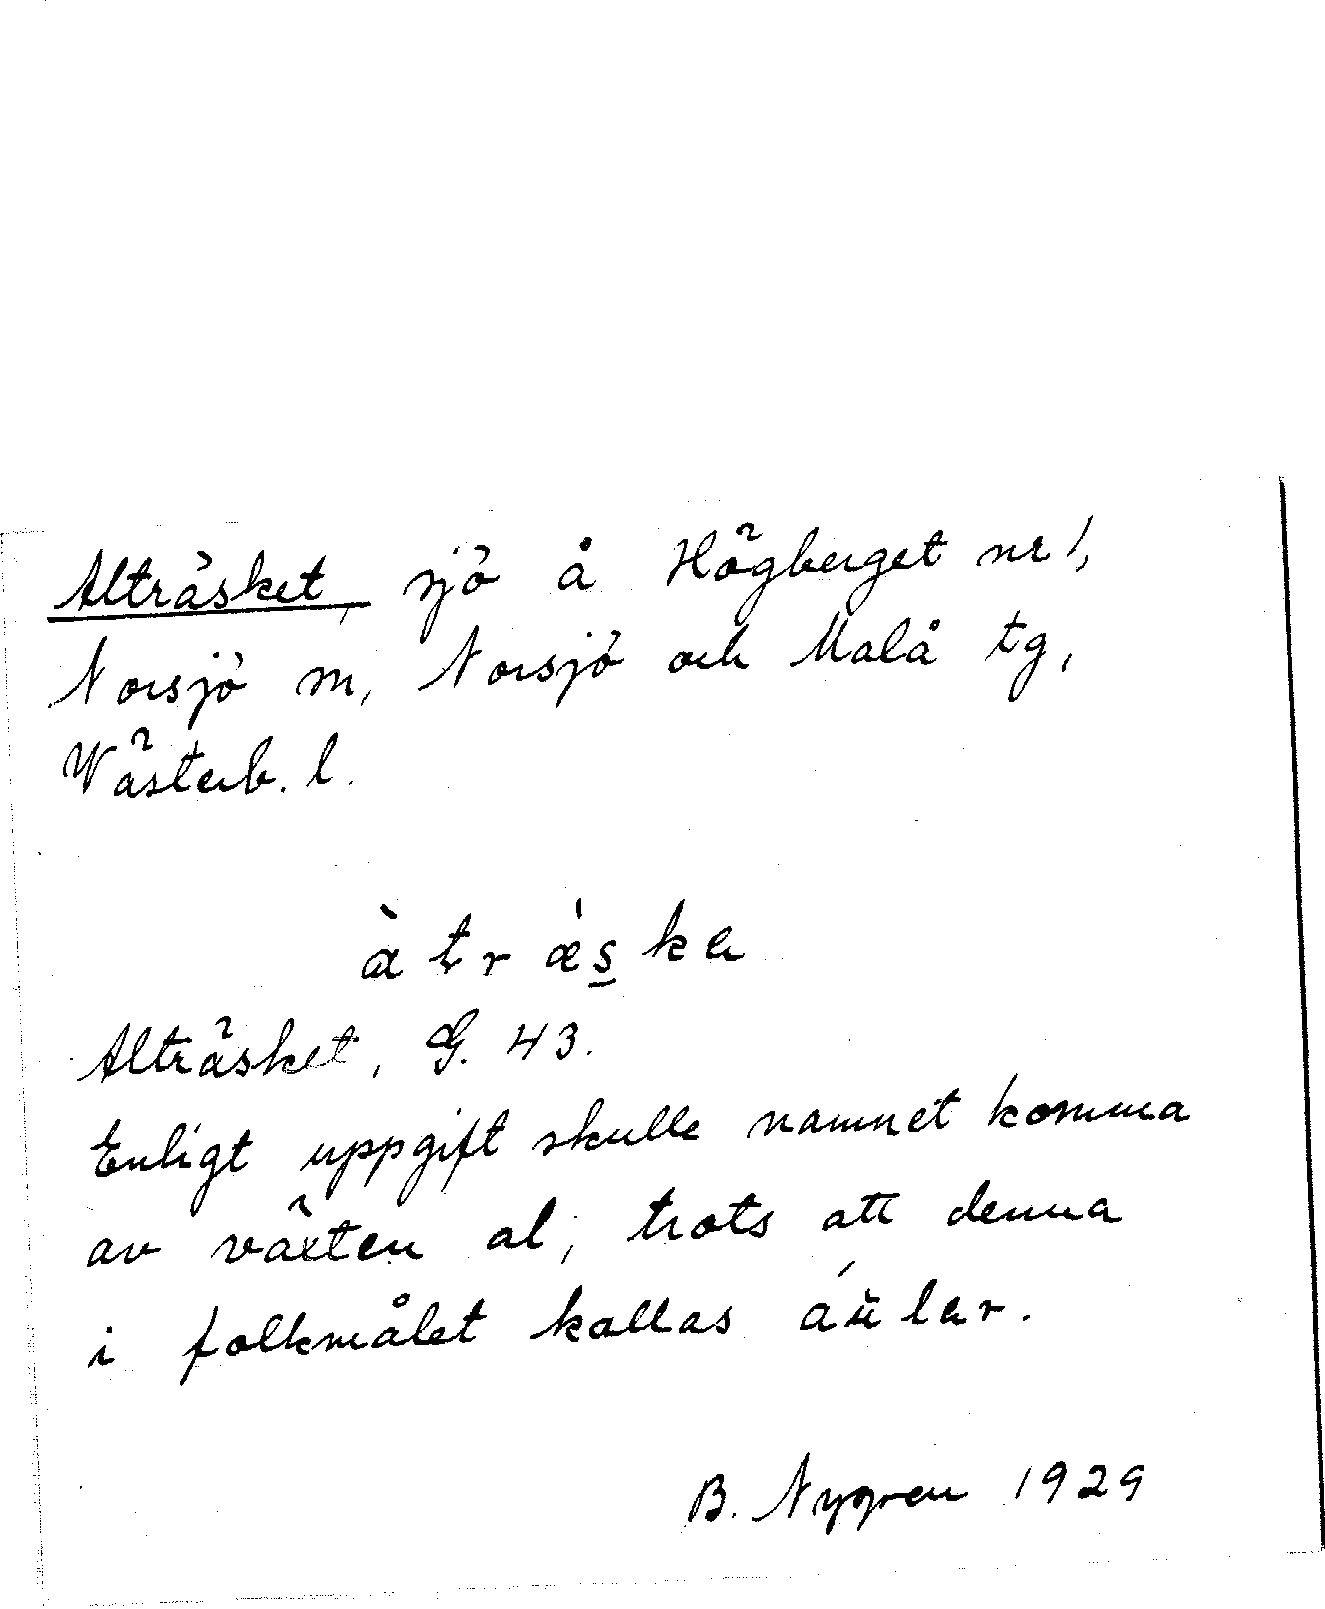 Alträsket, sjö å Högberget nr 1,
Norsjö m, Norsjö och Malå tg,
Västerb. l.
àtrǽs̲ka
Alträsket, G. 43.
Enligt uppgift skulle namnet komma
av växten al, trots att denna
i folkmålet kallas áŭlar.
B. Nygren 1929